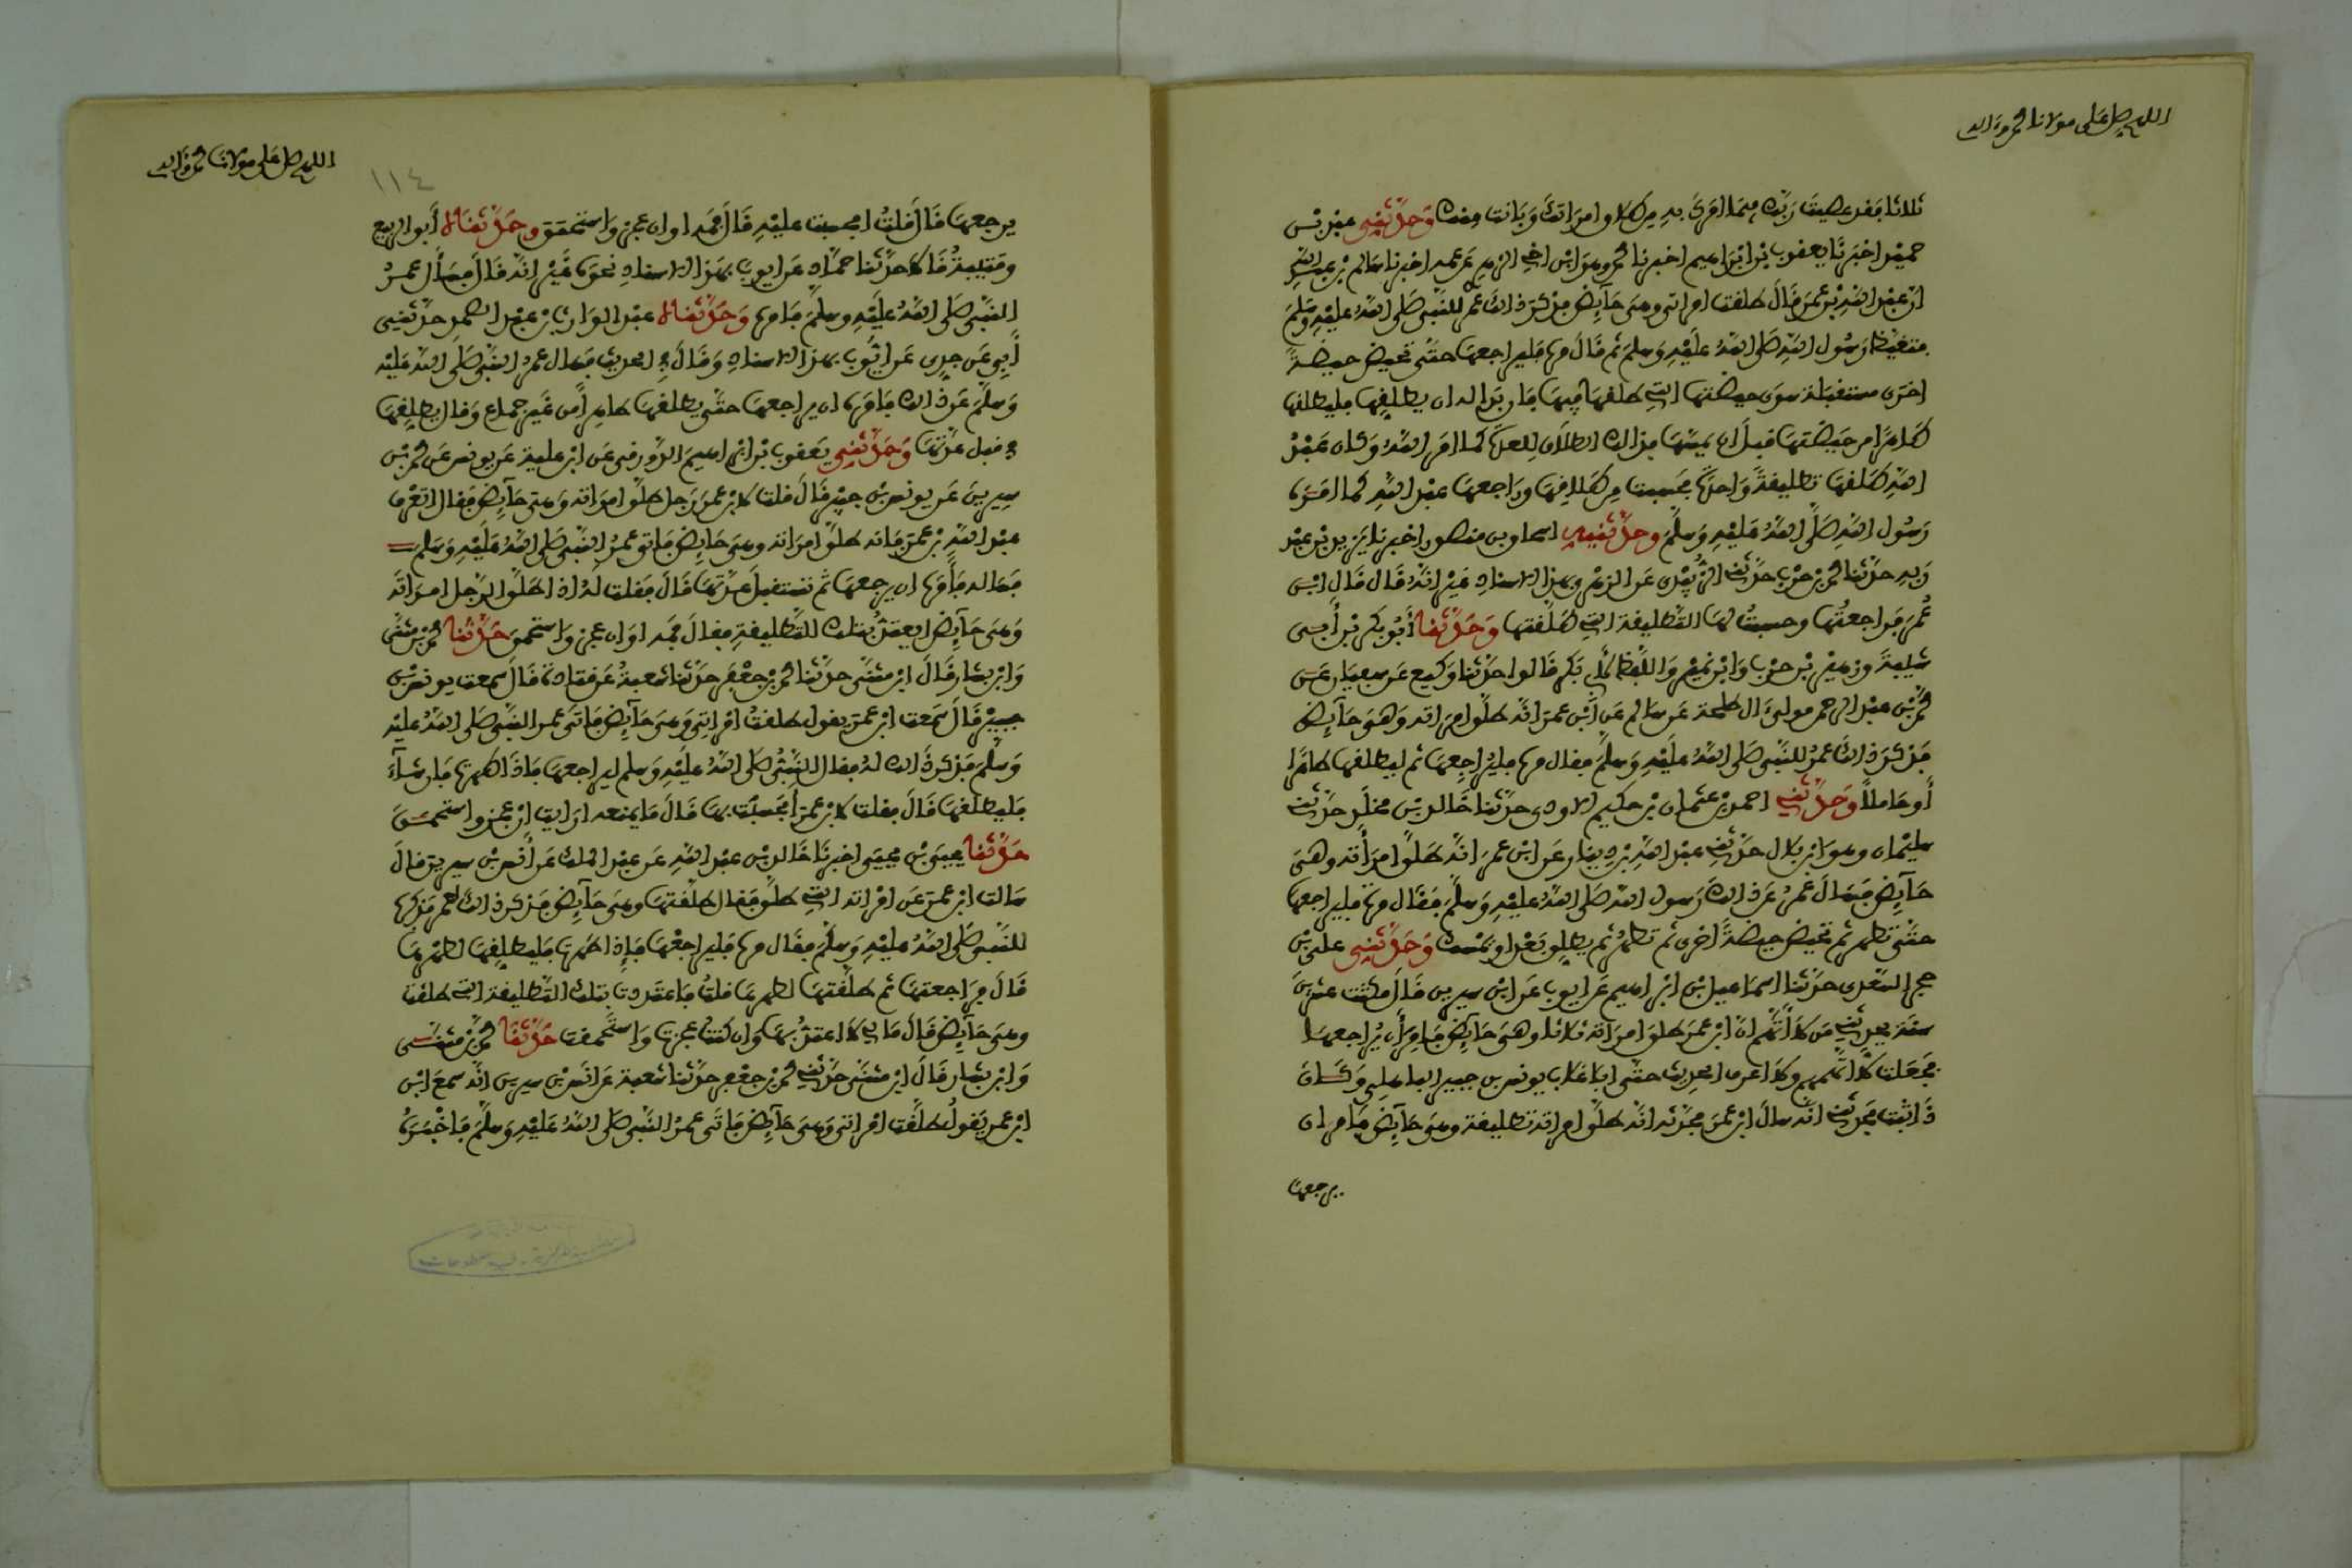 اللهم صل على مولانا محمد وآله
ثلاثا فقد عصيت ربك فيما امرك به من طلاق امراتك وبانت منك وحدثني عبد بن
حميد اخبرنا يعقوب بن ابراهيم اخبرنا محمد وهو ابن اخي الزهري عن عمه اخبرنا سالم بن عبد الله
ان عبد الله بن عمر قال طلقت امراتي وهي حائض فذكر ذلك عمر للنبي صلى الله عليه وسلم
فتغيظ رسول الله صلى الله عليه وسلم ثم قال مره فليراجعها حتى تحيض حيضة
اخرى مستقبلة سوى حيضتها التي طلقها فيها فان بدا له ان يطلقها فليطلقها
طاهرا من حيضتها قبل ان يمسها فذلك الطلاق للعدة كما امر الله وكان عبد
الله طلقها تطليقة واحدة فحسبت من طلاقها وراجعها عبد الله كما امره
رسول الله صلى الله عليه وسلم وحدثنيه اسحاق بن منصور اخبرنا يزيد بن عبد
ربه حدثنا محمد بن حرب حدثني الزبيدي عن الزهري بهذا الاسناد غير انه قال قال ابن
عمر فراجعتها وحسبت لها التطليقة التي طلقتها وحدثنا ابو بكر بن أبي
شيبة وزهير بن حرب وابن نمير واللفظ لأبي بكر قالوا حدثنا وكيع عن سفيان عن
محمد بن عبد الرحمن مولى ءال طلحة عن سالم عن ابن عمر انه طلق امراته وهي حائض
فذكر ذلك عمر للنبي صلى الله عليه وسلم فقال مره فليراجعها ثم ليطلقها طاهرا
أو حاملا وحدثني احمد بن عثمان بن حكيم الاودي حدثنا خالد بن مخلد حدثني
سليمان وهو ابن بلال حدثني عبد الله بن دينار عن ابن عمر انه طلق امرأته وهي
حائض فسال عمر عن ذلك رسول الله صلى الله عليه وسلم فقال مره فليراجعها
حتى تطهر ثم تحيض حيضة اخرى ثم تطهر ثم يطلق بعد او يمسك وحدثني علي بن
حجر السعدي حدثنا اسماعيل بن ابراهيم عن ايوب عن ابن سيرين قال مكثت عشرين
سنة يحدثني من لا أتهم ان ابن عمر طلق امراته ثلاثا وهي حائض فامر أن يراجعها
فجعلت لا اتهمهم ولا اعرف الحديث حتى لقيت ابا غلاب يونس بن جبير الباهلي وكان
ذا ثبت فحدثني انه سال ابن عمر فحدثه انه طلق امراته تطليقة وهي حائض فامر ان
يرجعها
اللهم صل على مولانا محمد وآله
١١٤
يرجعها قال قلت افحسبت عليه قال فمه او ان عجز واستحمق وحدثناه أبو الربيع
وقتيبة قالا حدثنا حماد عن ايوب بهذا الاسناد نحوه غير انه قال فسأل عمر
النبي صلى الله عليه وسلم فامره وحدثناه عبد الوارث بن عبد الصمد حدثني
أبي عن جدي عن ايوب بهذا الاسناد وقال في الحديث فسال عمر النبي صلى الله عليه
وسلم عن ذلك فامره ان يراجعها حتى يطلقها طاهرا من غير جماع وقال يطلقها
في قبل عدتها وحدثني يعقوب بن ابراهيم الدورقي عن ابن علية عن يونس عن محمد بن
سيرين عن يونس بن جبير قال قلت لابن عمر رجل طلق امراته وهي حائض فقال اتعرف
عبد الله بن عمر فانه طلق امراته وهي حائض فاتى عمر النبي صلى الله عليه وسلم
فساله فأمره ان يرجعها ثم تستقبل عدتها قال فقلت له اذا طلق الرجل امراته
وهي حائض ايعتد بتلك التطليقة فقال فمه او ان عجز واستحمق حدثنا محمد بن مثنى
وابن بشار قال ابن مثنى حدثنا محمد بن جعفر حدثنا شعبة عن قتادة قال سمعت يونس بن
جبير قال سمعت ابن عمر يقول طلقت امراتي وهي حائض فاتى عمر النبي صلى الله عليه
وسلم فذكر ذلك له فقال النبي صلى الله عليه وسلم ليراجعها فاذا طهرت فان شاء
فليطلقها قال فقلت لابن عمر أفحسبت بها قال ما يمنعه ارايت ان عجز واستحمق
حدثنا يحيى بن يحيى اخبرنا خالد بن عبد الله عن عبد الملك عن أنس بن سيرين قال
سالت ابن عمر عن امراته التي طلق فقال طلقتها وهي حائض فذكر ذلك لعمر فذكره
للنبي صلى الله عليه وسلم فقال مره فليراجعها فإذا طهرت فليطلقها لطهرها
قال فراجعتها ثم طلقتها لطهرها قلت فاعتددت بتلك التطليقة التي طلقت
وهي حائض قال ما لي لا اعتد بها وان كنت عجزت واستحمقت حدثنا محمد بن مثنى
وابن بشار قال ابن مثنى حدثني محمد بن جعفر حدثنا شعبة عن انس بن سيرين انه سمع ابن
ابن عمر يقول طلقت امراتي وهي حائض فاتى عمر النبي صلى الله عليه وسلم فاخبره